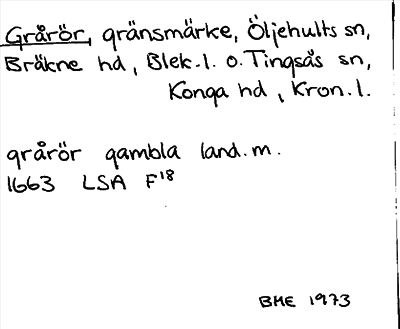 Grårör, gränsmärke, Öljehults sn,
Bräkne hd, Blek.l. o. Tingsås sn,
Konga hd, Kron.l.
grårör gambla land.m.
1663 LSA F18
BME 1973